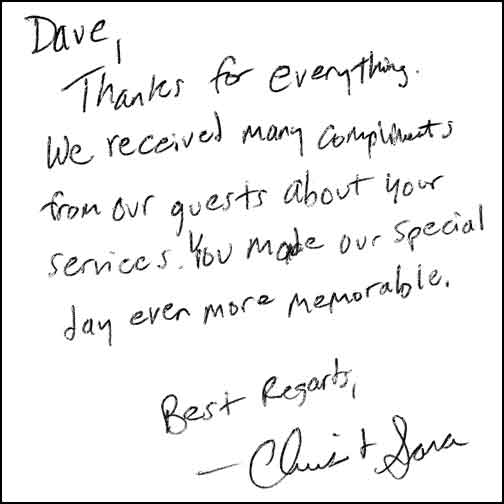 Dave,
Thanks for everything.
We received many compliments
from our guests about your
services. You made our special
day even more memorable.
Best Regards,
— Chris + Sara